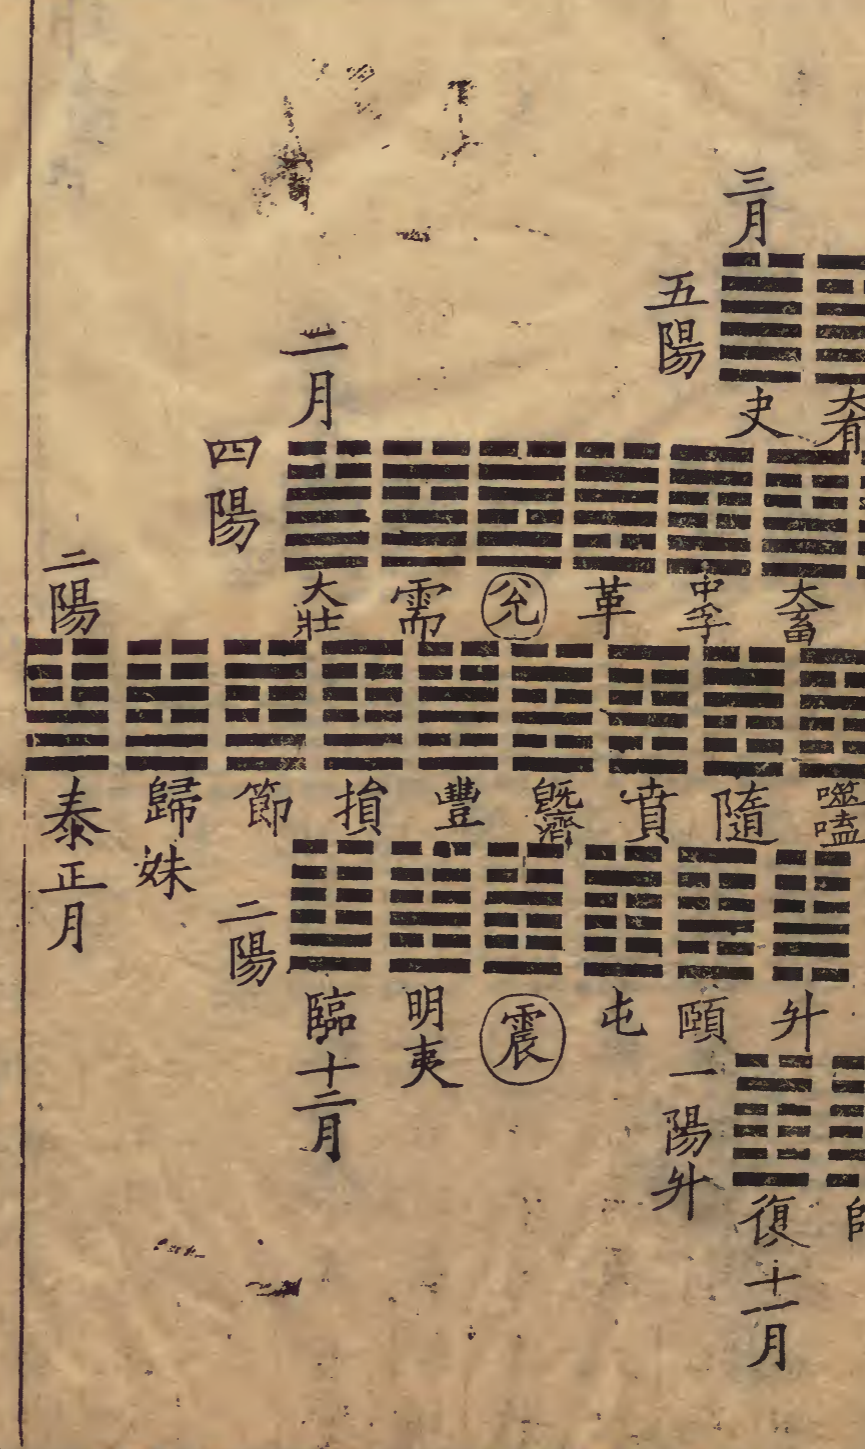 三月
五陽
夬
大有
二月
四陽
大壯
需
兊
革
中孚
大畜
二陽
泰正月
歸妹
節
損
豐
旣濟
賁
隨
噬嗑
二陽
臨十二月
明夷
震
屯
頤
升
一陽升
復十一月